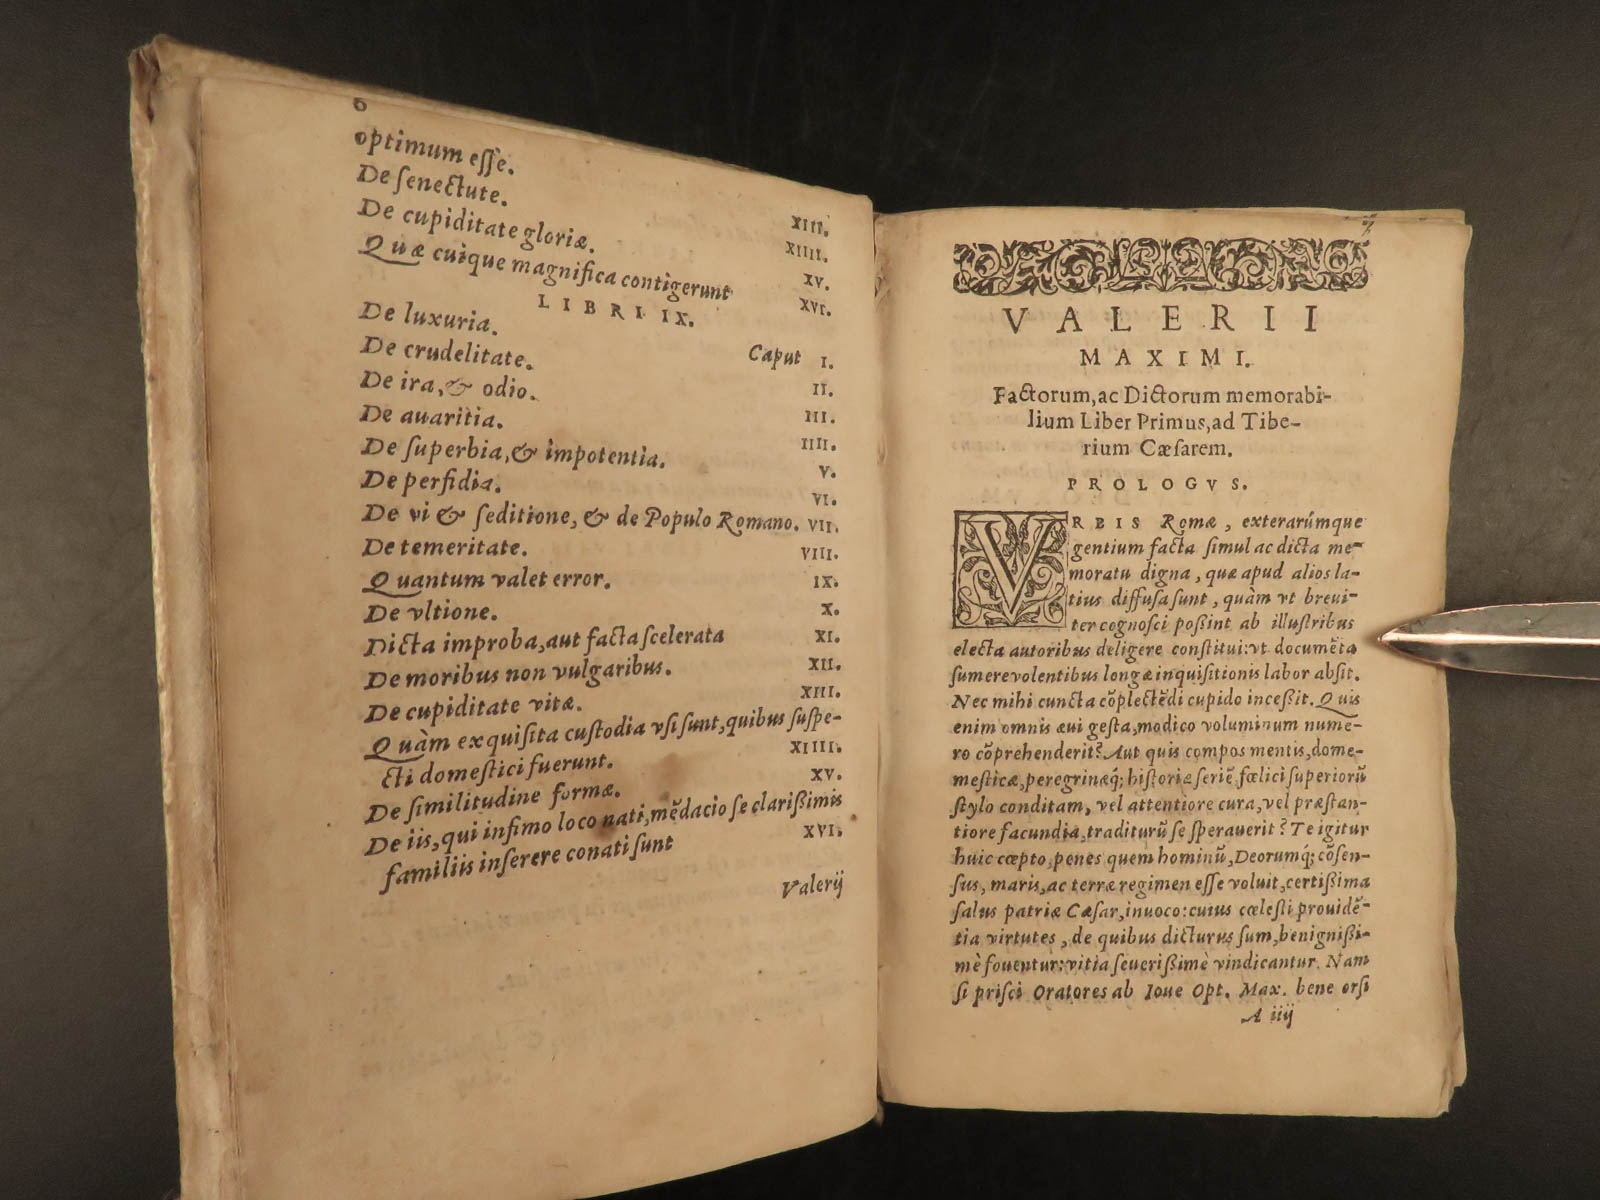 6
optimum esse.
De senectute. XIII.
De cupiditate gloriæ. XIIII.
Quæ cuique magnifica contigerunt XV.
LIBRI IX. XVI.
De luxuria.
De crudelitate. Caput I.
De ira, & odio. II.
De auaritia. III.
De superbia, & impotentia. IIII.
De perfidia. V.
De vi & seditione, & de Populo Romano. VI.
De temeritate. VII.
Quantum valet error. VIII.
De vltione. IX.
Dicta improba, aut facta scelerata X.
De moribus non vulgaribus. XI.
De cupiditate vitæ. XII.
Quàm exquisita custodia vsi sunt, quibus suspe- XIII.
cti domestici fuerunt. XIIII.
De similitudine formæ. XV.
De iis, qui infimo loco nati, mẽdacio se clarißimis
familiis inserere conati sunt XVI.
Valerij
7
VALERII
MAXIMI.
Factorum, ac Dictorum memorabi-
lium Liber Primus, ad Tibe-
rium Cæsarem.
PROLOGVS.
VRBIS Romæ, exterarúmque
gentium facta simul ac dicta me-
moratu digna, quæ apud alios la-
tius diffusa sunt, quàm vt breui-
ter cognosci poßint ab illustribus
electa autoribus deligere constitui: vt documẽta
sumere volentibus longæ inquisitionis labor absit.
Nec mihi cuncta cõplectẽdi cupido inceßit. Quis
enim omnis æui gesta, modico voluminum nume-
ro cõprehenderit? Aut quis compos mentis, dome-
mesticæ, peregrinæq; historiæ seriẽ fœlici superiorũ
stylo conditam, vel attentiore cura, vel præstan-
tiore facundia, traditurũ se sperauerit? Te igitur
huic cœpto, penes quem hominũ, Deorumq; cõsen-
sus, maris, ac terræ regimen esse voluit, certißima
salus patriæ Cæsar, inuoco: cuius cœlesti prouidẽ-
tia virtutes, de quibus dicturus sum, benignißi-
mè fouentur: vitia seuerißimè vindicantur. Nam
si prisci Oratores ab Ioue Opt. Max. bene orsi
A iiij